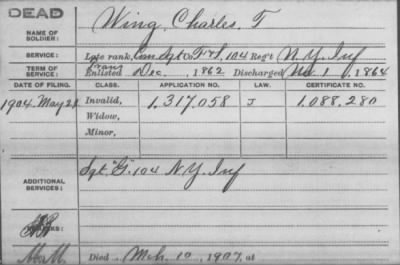 DEAD
NAME OF SOLDIER: Wing, Charles T
SERVICE: Late rank, Com Sgt Co. 104 Reg't N.Y. Inf
TERM OF SERVICE: Enlisted Dec., 1862 Discharged 1, 1864
DATE OF FILING. CLASS. APPLICATION NO. LAW. CERTIFICATE NO.
1904. May Invalid, 1.317.058 J 1.088.280
Widow,
Minor,
ADDITIONAL SERVICES: Sgt "G" 104 N.Y. Inf
REMARKS:
Died Mch. 10, 1907, at